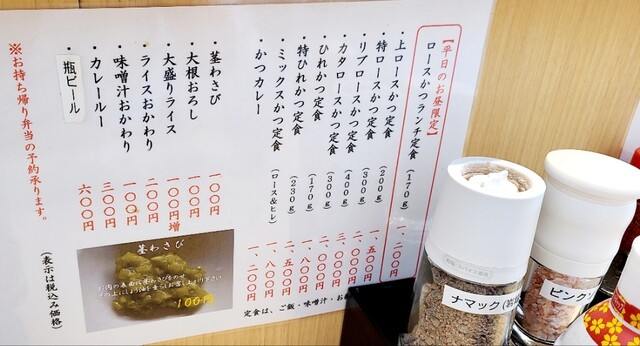 【平日のお昼限定】
ロースかつランチ定食 (170g) 一、二〇〇円
・上ロースかつ定食 (200g) 一、五〇〇円
・特ロースかつ定食 (300g) 二、〇〇〇円
・リブロースかつ定食 (400g) 三、〇〇〇円
・カタロースかつ定食 (300g) 二、〇〇〇円
・ひれかつ定食 (170g) 一、八〇〇円
・特ひれかつ定食 (230g) 二、五〇〇円
・ミックスかつ定食 (ロース&ヒレ) 一、八〇〇円
・かつカレー 一、二〇〇円
定食は、ご飯・味噌汁・お
・茎わさび 一〇〇円
・大根おろし 一〇〇円
・大盛りライス 一〇〇円増
・ライスおかわり 二〇〇円
・味噌汁おかわり 一〇〇円
・カレールー 三〇〇円
・瓶ビール 六〇〇円
(表示は税込み価格)
※お持ち帰り弁当の予約承ります。
茎わさび
お肉の表面に茎わさびをのせ
その上にしょうゆ油を垂らしお召し上がり下さい
100円
ナマック(岩
ピンクソ